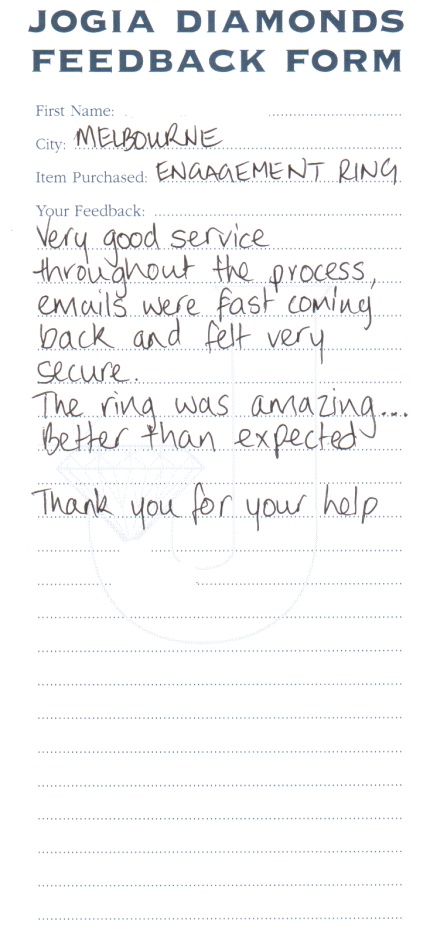 JOGIA DIAMONDS
FEEDBACK FORM
First Name:
City: MELBOURNE
Item Purchased: ENGAGEMENT RING
Your Feedback:
Very good service
throughout the process,
emails were fast coming
back and felt very
secure.
The ring was amazing...
Better than expected
Thank you for your help